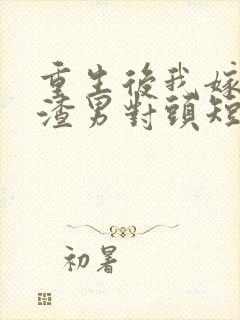 重生後我嫁
渣男對頭短
初暑